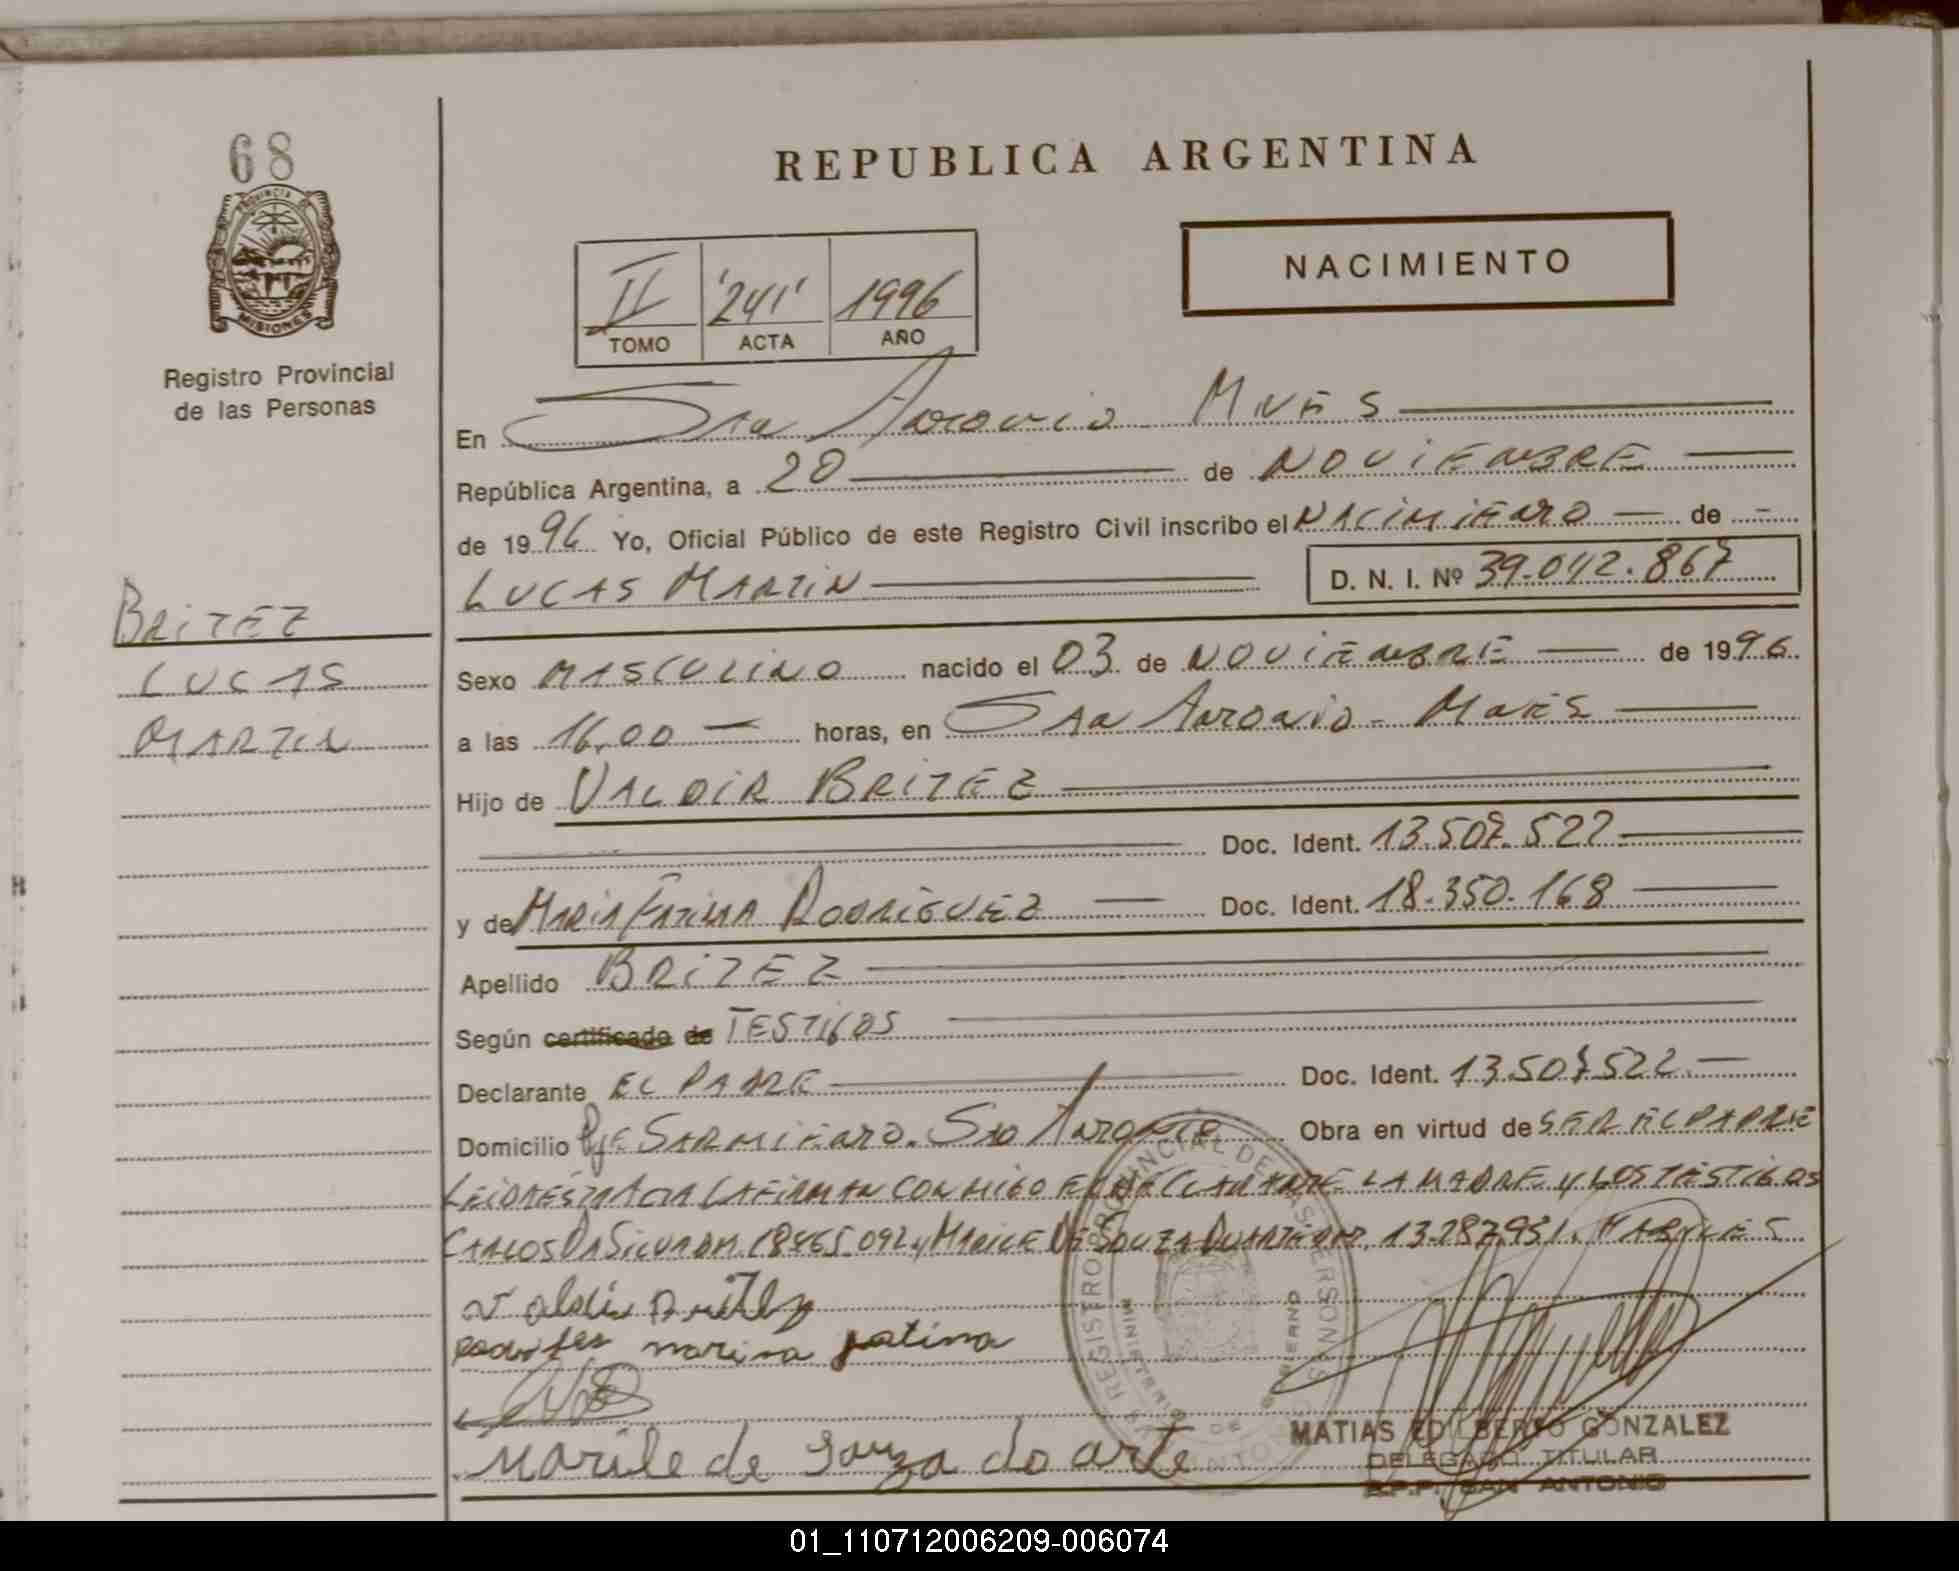 68
PROVINCIA DE
MISIONES
Registro Provincial
de las Personas
BRITEZ
LUCAS
MARTIN
REPUBLICA ARGENTINA
NACIMIENTO
II '241' 1996
TOMO ACTA AÑO
En San Antonio Mnes
República Argentina, a 20 de NOVIEMBRE
de 1996 Yo, Oficial Público de este Registro Civil inscribo el NACIMIENTO de
LUCAS MARTIN D. N. I. Nº 39.042.867
Sexo MASCULINO nacido el 03 de NOVIEMBRE de 1996.
a las 16,00 horas, en San Antonio - Mnes
Hijo de VALDIR BRITEZ
Doc. Ident. 13.507.522
y de MARIA FATIMA RODRIGUEZ Doc. Ident. 18.350.168
Apellido BRITEZ
Según certificado de TESTIGOS
Declarante EL PADRE Doc. Ident. 13.507.522
Domicilio Pje SARMIENTO. San Antonio Obra en virtud de SER EL PADRE
LEIDA ESTA ACTA LA FIRMAN CONMIGO EL DECLARANTE LA MADRE Y LOS TESTIGOS
CARLOS DA SILVA DNI 18465092 y MARILE DE SOUZA DUARTE DNI 13.787.931.
Valdir Britez
marina fatima
Marile de Souza do arte
REGISTRO PROVINCIAL DE LAS PERSONAS
MINISTERIO DE GOBIERNO
MATIAS EDILBERTO GONZALEZ
DELEGADO TITULAR
R.P.P. SAN ANTONIO
01_110712006209-006074